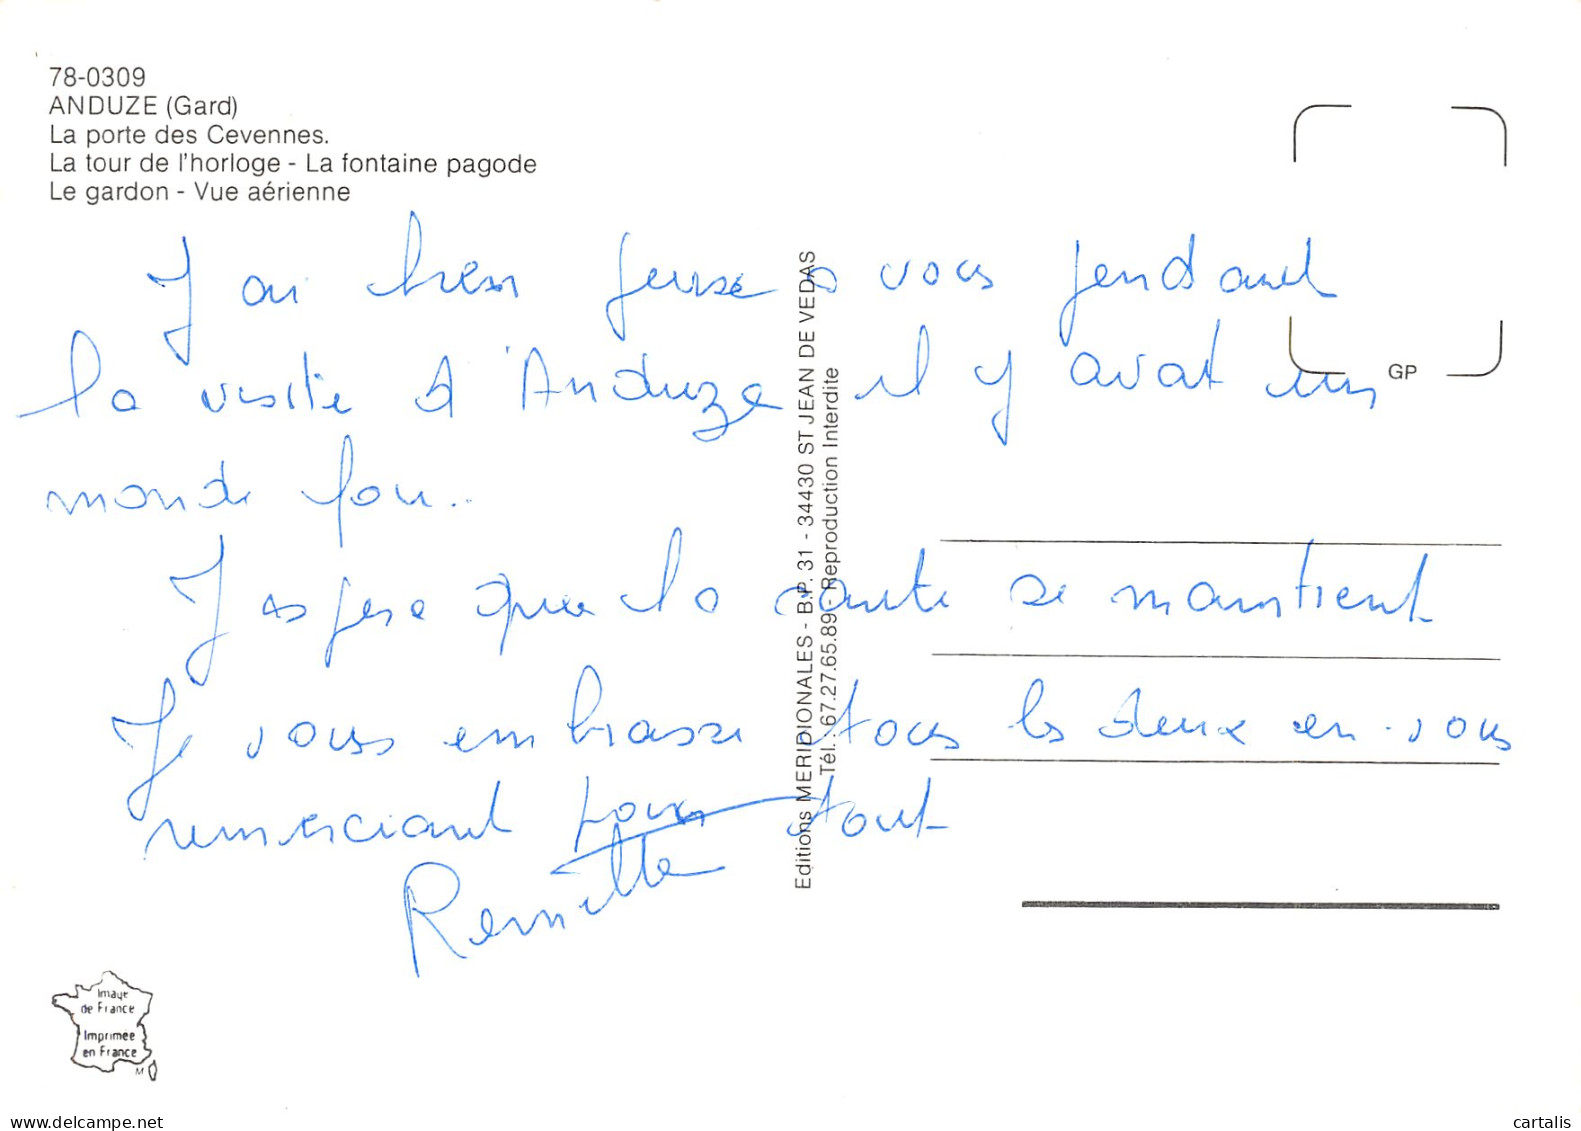 78-0309
ANDUZE (Gard)
La porte des Cevennes.
La tour de l'horloge - La fontaine pagode
Le gardon - Vue aérienne
J'ai bien pensé à vous pendant
la visite d'Anduze il y avait un
monde fou..
J'espère que la santé se maintient
Je vous embrasse tous les deux en vous
remerciant pour tout
GP
Editions MERIDIONALES - B.P. 31 - 34430 ST JEAN DE VEDAS
Tél. : 67.27.65.89 - Reproduction Interdite
Image
de France
Imprimée
en France
M
www.delcampe.net
cartalis